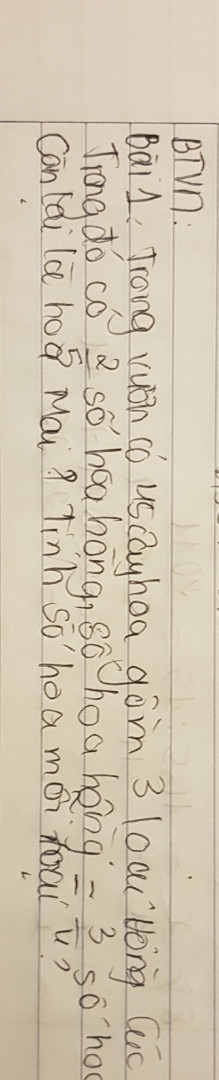 BTVN:
Bài 1: Trong vườn có 45 cây hoa gồm 3 loại Hồng Cúc
Trong đó có 2/5 số hoa hồng, số hoa hồng = 3/4 số hoa
Còn lại là hoa Mai ? Tính số hoa mỗi loại